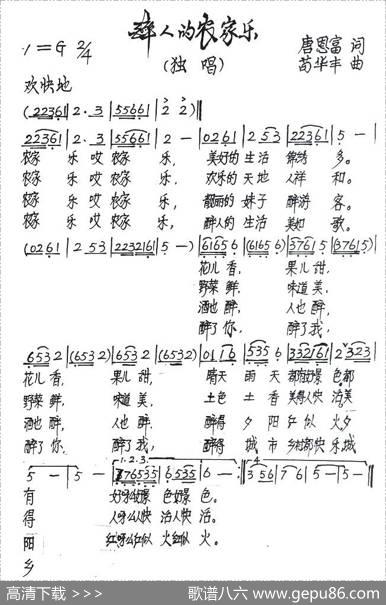 醉人的农家乐
1=G 2/4 (独唱) 唐恩富 词
苟华丰 曲
欢快地
(22361 | 2·3 | 55661 | 2 2) ‖
22361 | 2·3 | 55661 | 2 - | 0261 | 253 | 22361 | 5 - |
农家 乐 哎 农家 乐, 美好的 生活 多。
农家 乐 哎 农家 乐, 欢乐的 天地 人祥 和。
农家 乐 哎 农家 乐, 靓丽的 妹子 醉游 客。
农家 乐 哎 农家 乐, 醉人的 生活 美如 歌。
(0261 | 253 | 2232161 | 5 -) | 61656 | (61656) | 57615 | (57615) |
花儿 香, 果儿 甜,
野菜 鲜, 味道 美,
酒也 醉, 人也 醉,
醉了 你, 醉了 我,
6532 | (6532) | 6532 | (6532) | 0116 | 5356 | 332161 | 2323 |
花儿 香, 果儿 甜, 晴天 雨天 色都
野菜 鲜, 味道 美, 土色 土香 活美
酒也 醉, 人也 醉, 醉得 夕阳 红似 火夕
醉了 你, 醉了 我, 醉得 城市 乡村都快 乐城
5 - | 5 - | 1.2.3. 1765356 | 6535 | 6 - :‖ 4. 356 | 76 | 5 - | 5 - ‖
有 好呀么好景 色好景 色。
得 人呀么人快 活人快 活。
阳 红呀么红似 火红似 火。
乡
高清下载 >>> 歌谱八六 www.gepu86.com